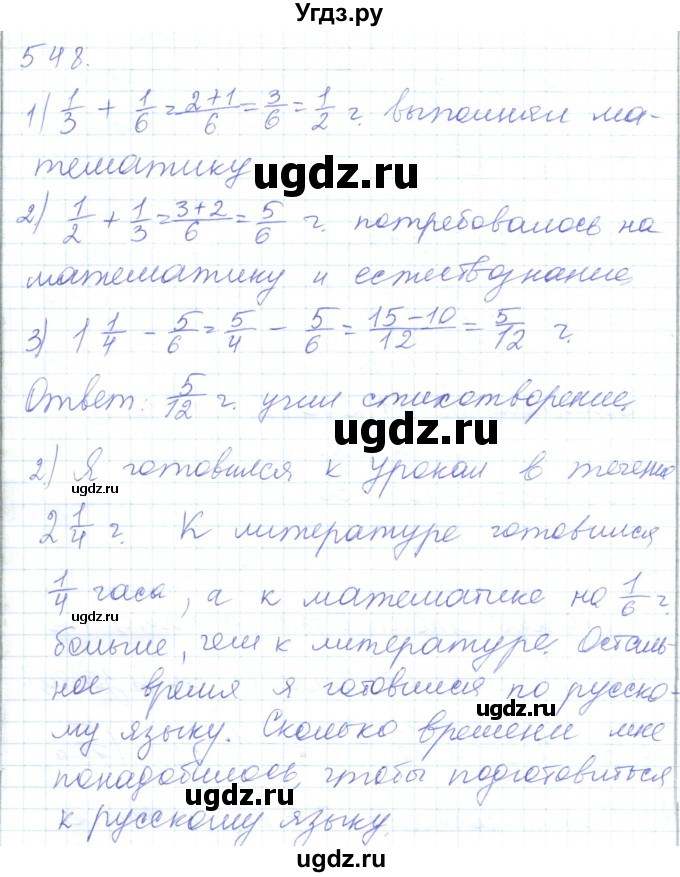 Угдз.ру
548.
1) 1/3 + 1/6 = 2+1/6 = 3/6 = 1/2 ч. выполнял ма-
тематику
ugdz.ru
2) 1/2 + 1/3 = 3+2/6 = 5/6 ч. потребовалось на
математику и естествознание
3) 1 1/4 - 5/6 = 5/4 - 5/6 = 15-10/12 = 5/12 ч.
Ответ: 5/12 ч. учил стихотворение.
ugdz.ru
2.) Я готовился к урокам в течение
ugdz.ru
2 1/4 ч. К литературе готовился
1/4 часа, а к математике на 1/6 ч.
ugdz.ru
больше, чем к литературе. Осталь-
ное время я готовился по русско-
ugdz.ru
му языку. Сколько времени мне
понадобилось, чтобы подготовиться
ugdz.ru
к русскому языку.
ugdz.ru